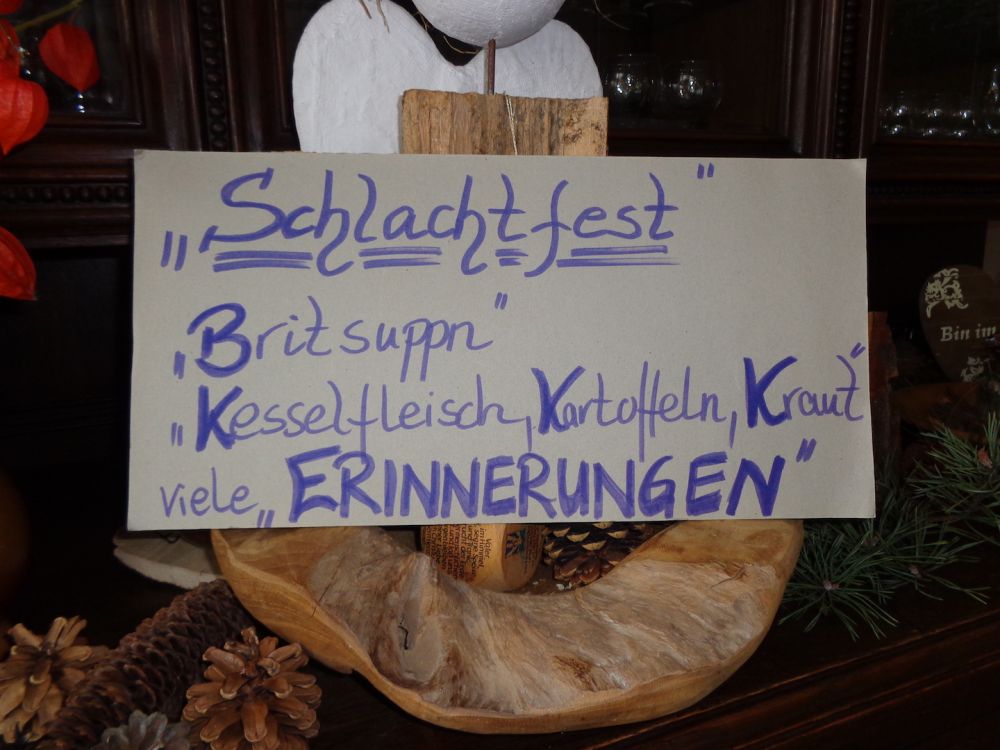 „Schlachtfest"
„Britsuppn"
„Kesselfleisch, Kartoffeln, Kraut"
viele „ERINNERUNGEN"
Bin im